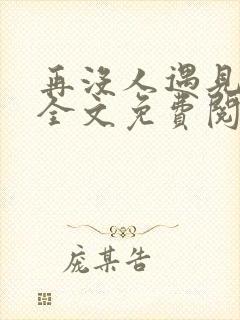 再没人遇见
全文免費閱
庞某告